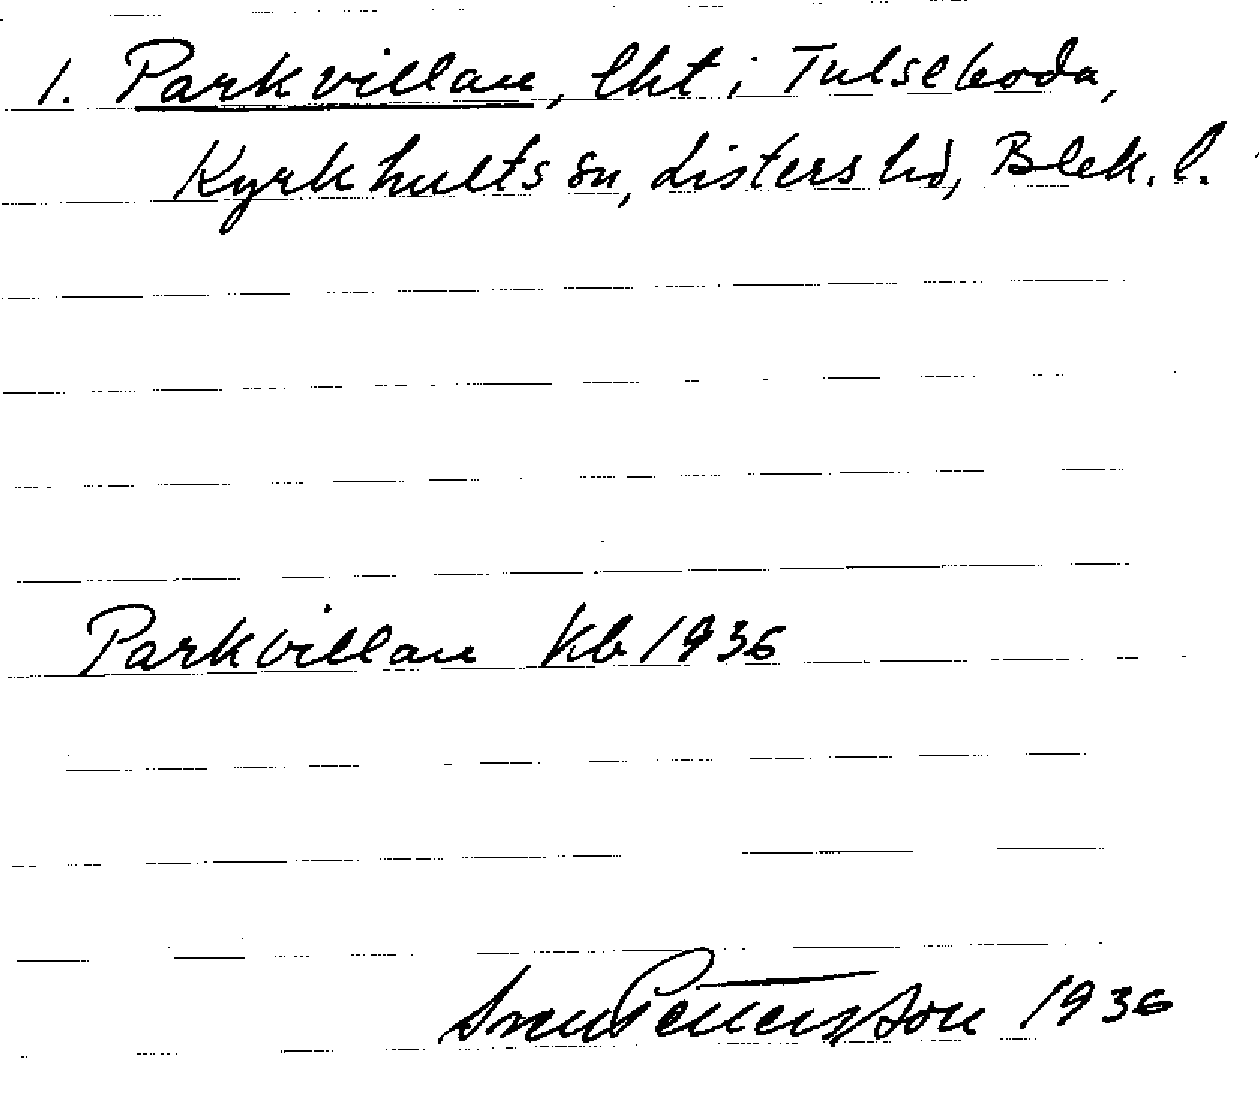 1. Parkvillan, lht i Tulseboda,
Kyrkhults sn, Listers hd, Blek. l.
Parkvillan Kb 1936
Sven Pettersson 1936